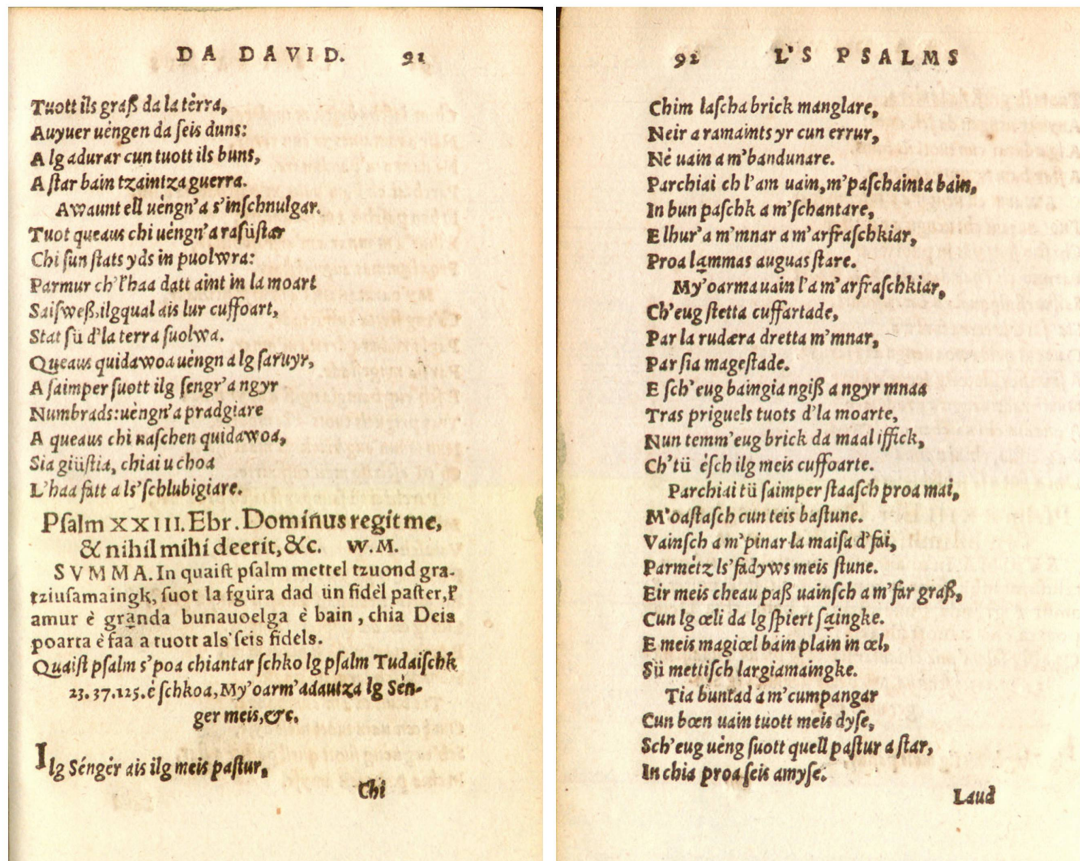 DA DAVID. 91
Tuott ils graß da la tèrra,
Auyuer uèngen da ſeis duns:
A lg adurar cun tuott ils buns,
A ſtar bain tzaintza guerra.
Awaunt ell uèngn'a s'inſchnulgar.
Tuot queaus chi uèngn'a raſüſtar
Chi ſun ſtats yds in puolwra:
Parmur ch'l'haa datt aint in la moart
Saiſweß, ilgqual ais lur cuffoart,
Stat ſü d'la terra ſuolwa.
Queaus quidawoa uèngn a lg ſaruyr,
A ſaimper ſuott ilg ſengr'a ngyr
Numbrads: uèngn'a pradgiare
A queaus chi naſchen quidawoa,
Sia giüſtia, chiai u choa
L'haa fatt a ls'ſchlubigiare.
Pſalm XXIII. Ebr. Dominus regit me,
& nihil mihi deerit, &c. W. M.
SVMMA. In quaiſt pſalm mettel tzuond gra-
tziuſamaingk, ſuot la fgüra dad ün fidèl paſter, l'
amur è grānda bunauoelga è bain, chia Deis
poarta è faa a tuott als' ſeis fidels.
Quaiſt pſalm s'poa chiantar ſchko lg pſalm Tudaiſchk
23. 37. 125. è ſchkoa, My'oarm'adautza lg Sén-
ger meis, &c.
Ilg Séngér ais ilg meis paſtur,
Chi
92 L'S PSALMS
Chim laſcha brick manglare,
Neir a ramaints yr cun errur,
Nè uain a m'bandunare.
Parchiai ch l'am uain, m'paſchainta bain,
In bun paſchk a m'ſchantare,
E lhur'a m'mnar a m'arfraſchkiar,
Proa lammas auguas ſtare.
My'oarma uain l'a m'arfraſchkiar,
Ch'eug ſtetta cuffartade,
Par la rudæra dretta m'mnar,
Par ſia mageſtade.
E ſch'eug baingia ngiß a ngyr mnaa
Tras priguels tuots d'la moarte,
Nun temm'eug brick da maal iffick,
Ch'tü èſch ilg meis cuffoarte.
Parchiai tü ſaimper ſtaaſch proa mai,
M'oaſtaſch cun teis baſtune.
Vainſch a m'pinar la maiſa d'fai,
Parmetz ls'fadyws meis ſtune.
Eir meis cheau paß uainſch a m'far graß,
Cun lg œli da lg ſpiert ſaingke.
E meis magiœl bain plain in œl,
Sü mettiſch largiamaingke.
Tia buntad a m'cumpangar
Cun bœn uain tuott meis dyſe,
Sch'eug uèng ſuott quell paſtur a ſtar,
In chia proa ſeis amyſe.
Laud